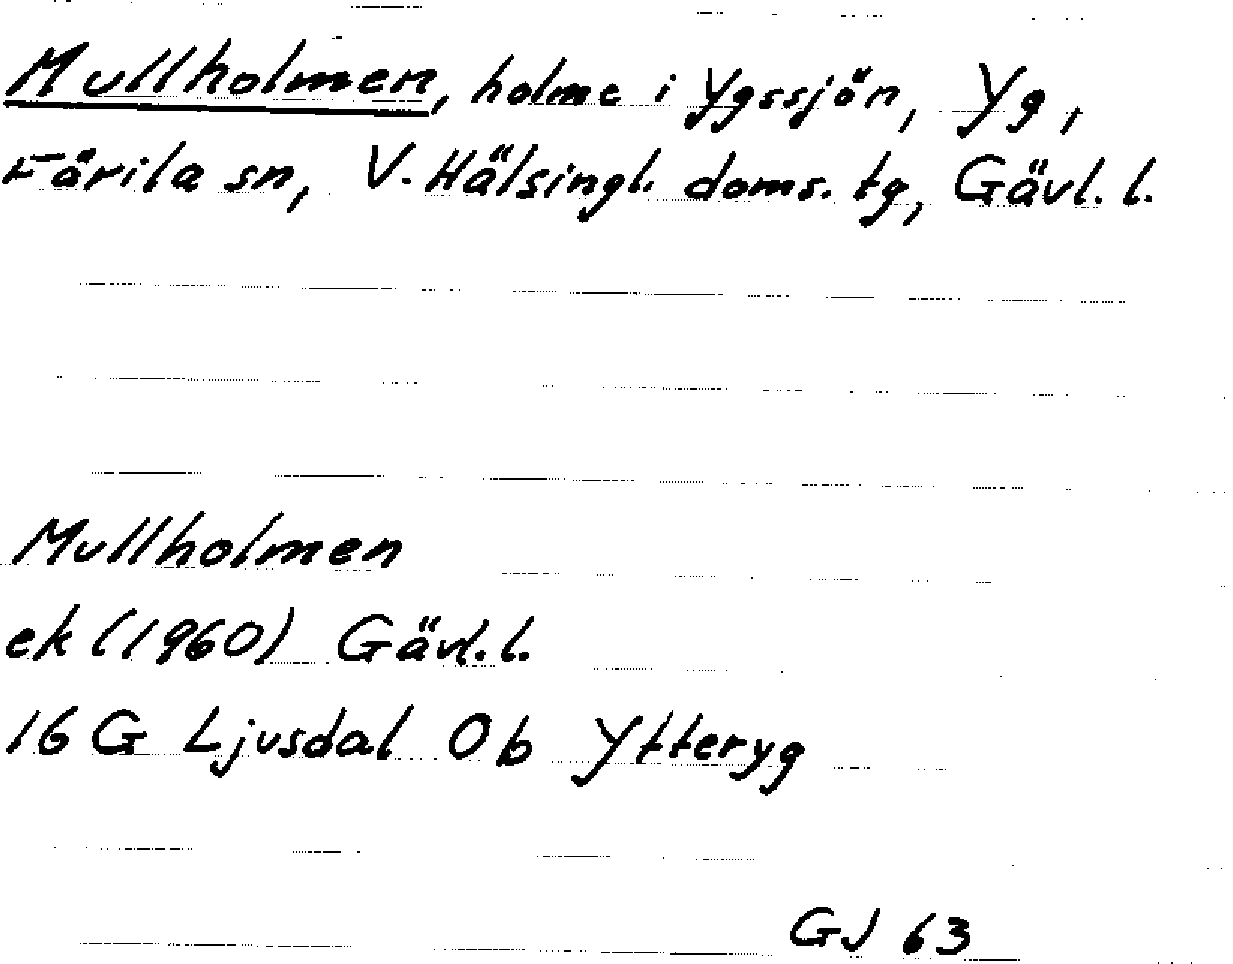 Mullholmen, holme i Ygssjön, Yg,
Färila sn, V. Hälsingl. doms. tg, Gävl. l.
Mullholmen
ek (1960) Gävl. l.
16 G Ljusdal 0 b Ytteryg
GJ 63